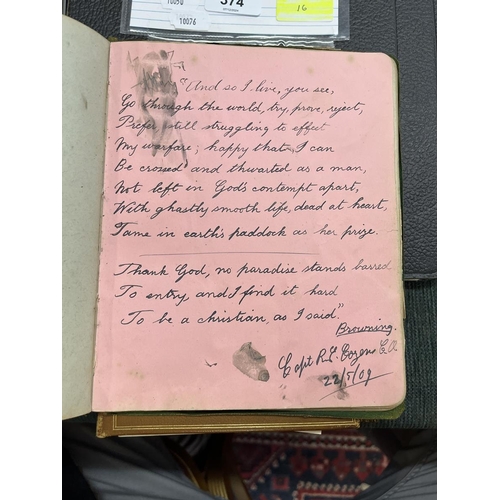 10090
374
16
10076
"And so I live, you see,
Go through the world, try, prove, reject,
Prefer still struggling to effect
My warfare; happy that I can
Be crossed and thwarted as a man,
Not left in God's contempt apart,
With ghastly smooth life, dead at heart,
Tame in earth's paddock as her prize.
Thank God, no paradise stands barred
To entry and I find it hard
To be a christian, as I said."
Browning.
Capt R.E. Cozens C.A.
22/5/09